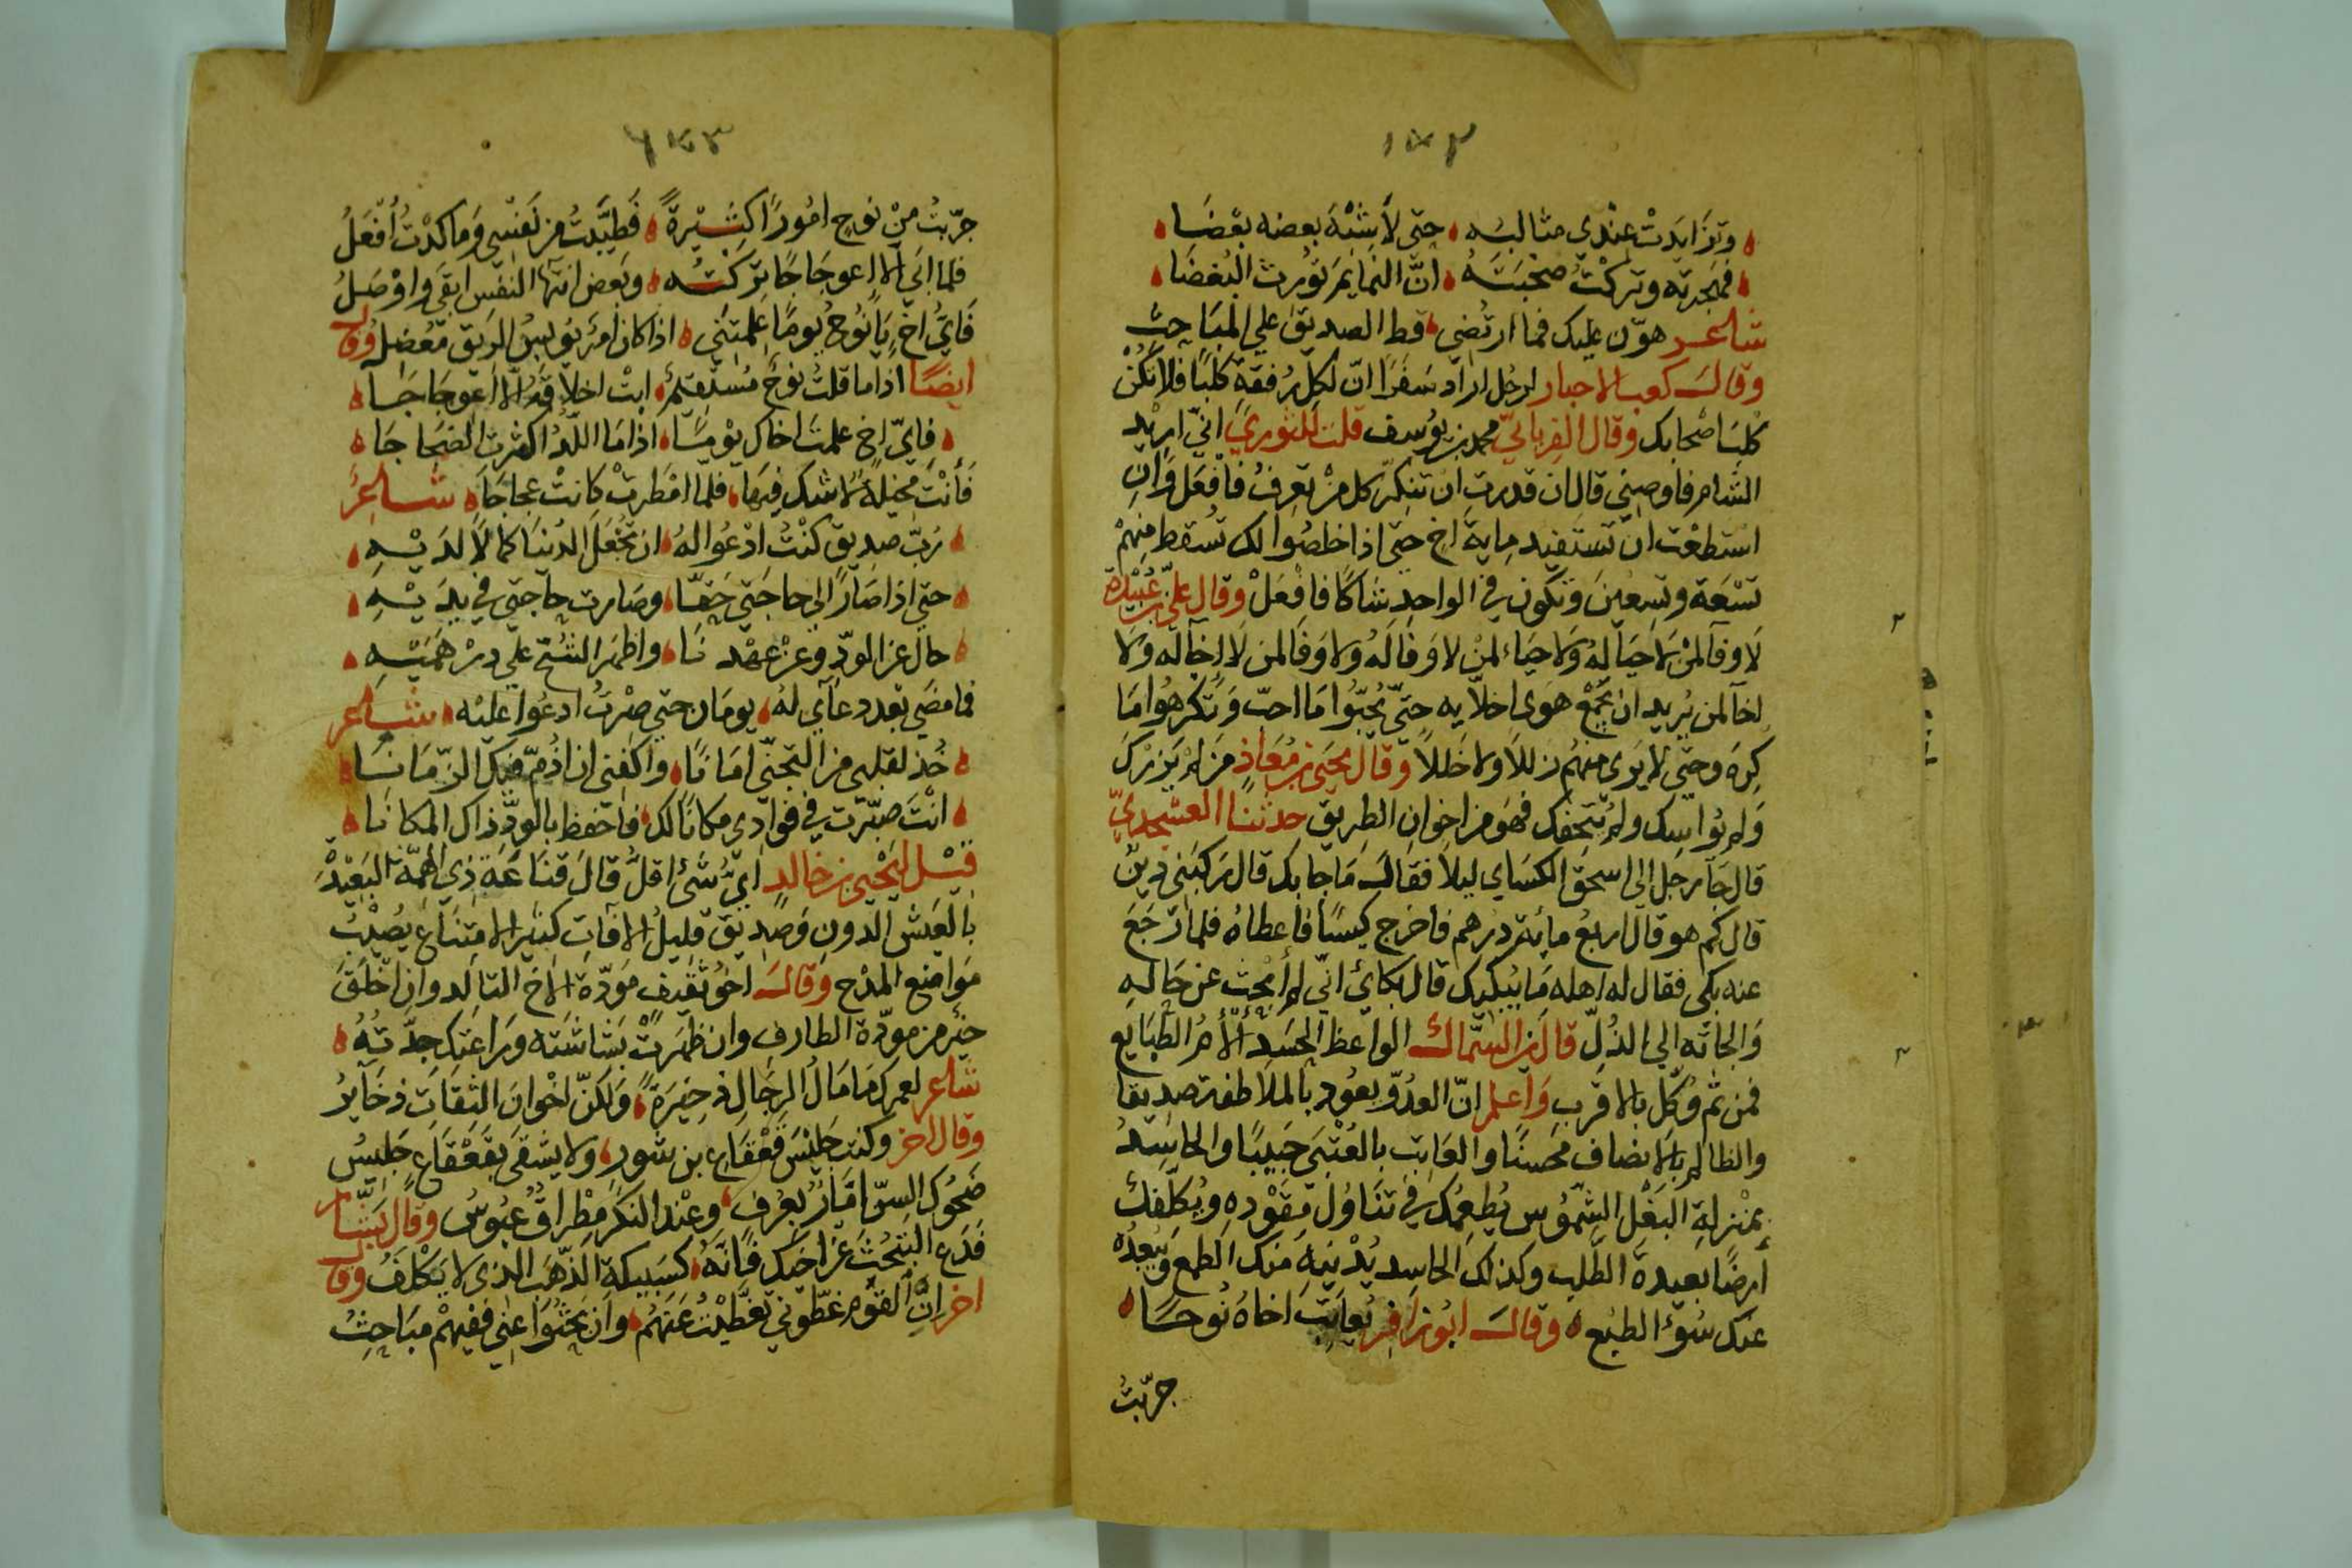 ١٥٢
وتزايدت عندي مثالبه حتى لأشنه بعضه بعضا
فهجرته وتركت صحبته انّ النمايم تورث البغضا
شاعر هوّن عليك فما ارتضي قط الصديق علي المباحث
وقال كعب الاحبار لرجل اراد سفرا انّ لكل رفقة كلبا فلا تكن
كلب اصحابك وقال الفريابيّ محمد بن يوسف قلت للثوري انّي اريد
الشام فاوصني قال ان قدرت ان تنكر كل من تعرف فافعل وان
استطعت ان تستفيد ماية اخ حتي اذا خلصوا لك تسقط منهم
تسعة وتسعين وتكون في الواحد شاكا فافعل وقال علي بن عبيدة
لا وفا لمن لا حيا له ولا حياء لمن لا وفا له ولا وفا لمن لا اخا له ولا
اخا لمن يريد ان يجمع هوى اخلايه حتّي يحبّوا ما احب وتكرهوا ما
كره وحتي لا يرى منهم زللا ولا خللا وقال يحيي بن معاذ من لم يزرك
ولم يواسك ولم يتحفك فهو من اخوان الطريق حدثنا العسجديّ
قال جآ رجل الى اسحق الكساي ليلا فقال ما جا بك قال ركبني دين
قال كم هو قال اربع مائة درهم فاخرج كيسا فاعطاه فلما رجع
عنه بكى فقال له اهله ما يبكيك قال بكائي انّي لم ابحث عن حاله
والجاته الي الذلّ قال بن السمّاك الواعظ الحسد ألأم الطبايع
فمن ثم وكّل بالاقرب واعلم انّ العدوّ يعود بالملاطفة صديقا
والظالم بالانصاف محسنا والعاتب بالعتبي حبيبا والحاسد
بمنزلة البغل الشموس يطعمك في تناول مقوده ويكلّفك
أرضا بعيدة الطلب وكذلك الحاسد يدنيه منك الطمع ويبعده
عنك سوء الطبع وقال ابو زافر يعاتب اخاه نوحا
جرّبت
١٥٣
جرّبت من نوح امورا كثيرة فطيّبت من نفسي وما كدت أفعل
فلما ابي الا اعوجاجا تركته وبعض انتها النفس ابقي واوصل
فأي اخ يا نوح يوما علمتني اذا كان امر يوبس الريق معضل وقال
ايضا اذا ما قلت نوح مستقيم ابت اخلاقه الا اعوجاجا
فايّ اخ علمت اخاك يوما اذا ما اللّد اكثرت الضجاجا
فأنت مخيلة لا شك فيها فلمّا امطرت كانت عجاجا شاعر
ربّ صديق كنت ادعوا له ان تجعل الدنيا كمالا لديه
حتي اذا صار الي حاجتي حقّا وصارت حاجتي في يديه
حال عن الودّ وعن عهدنا واظهر الشحّ علي درهميه
فما مضي بعد دعآي له يومان حتي صرت ادعوا عليه شاعر
خذ لقلبي من التجنّي امانا واكفني ان اذمّ فيك الزّمانا
انت صيّرت في فوادي مكانا لك فاحفظ بالودّ ذاك المكانا
قيل ليحيي بن خالد ايّ شئ اقلّ قال قناعة ذي الهمّة البعيدة
بالعيش الدون وصديق قليل الافات كثير الامتناع يصيب
مواضع المدح وقال اخو ثقيف مودّة الاخ التالد وان اخلق
خير من مودّة الطارف وان ظهرت بشاشته وراعتك جدّته
شاعر لعمرك ما مال الرجال ذخيرة ولكنّ اخوان الثقات ذخاير
وقال اخر وكنت جليس قعقاع بن شور ولا يشقى بقعقاع جليس
ضحوك السن امّار بعرف وعند النكر مطراق عبوس وقال بشّار
فدع التبحّث عن اخيك فانّه كسبيكة الذّهب الذي لا يكلف وقال
اخر انّ القوم غطّوني تغطّيت عنهم وان بحثوا عني ففيهم مباحث